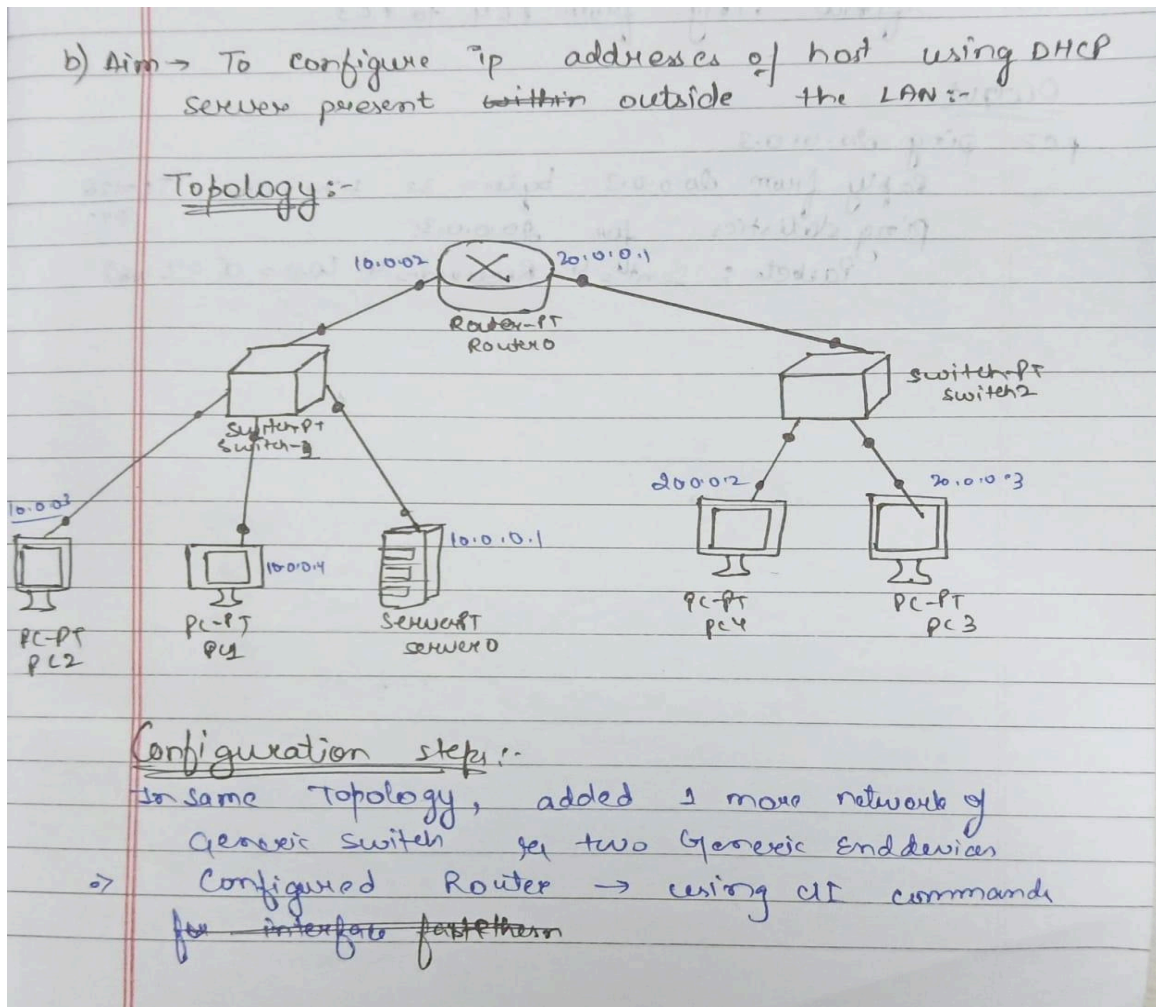 b) Aim → To configure ip addresses of host using DHCP
server present within outside the LAN:-
Topology:-
10.0.02 20.0.0.1
Router-PT
Router0
Switch-PT
Switch2
SwitchPT
Switch-
200.0.2 20.0.0.3
10.0.03
10.0.0.1
10.0.0.4
PC-PT
PC2
PC-PT
PC1
ServerPT
Server0
PC-PT
PC4
PC-PT
PC3
Configuration steps:-
In same Topology, added 1 more network of
Generic switch two Generic Enddevices
Configured Router → using CLI commands
for interface fastethern